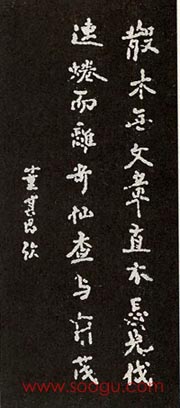 散木無文章直木忌先伐
連蜷而離奇仙查与寶筏
董其昌題
www.soogu.com